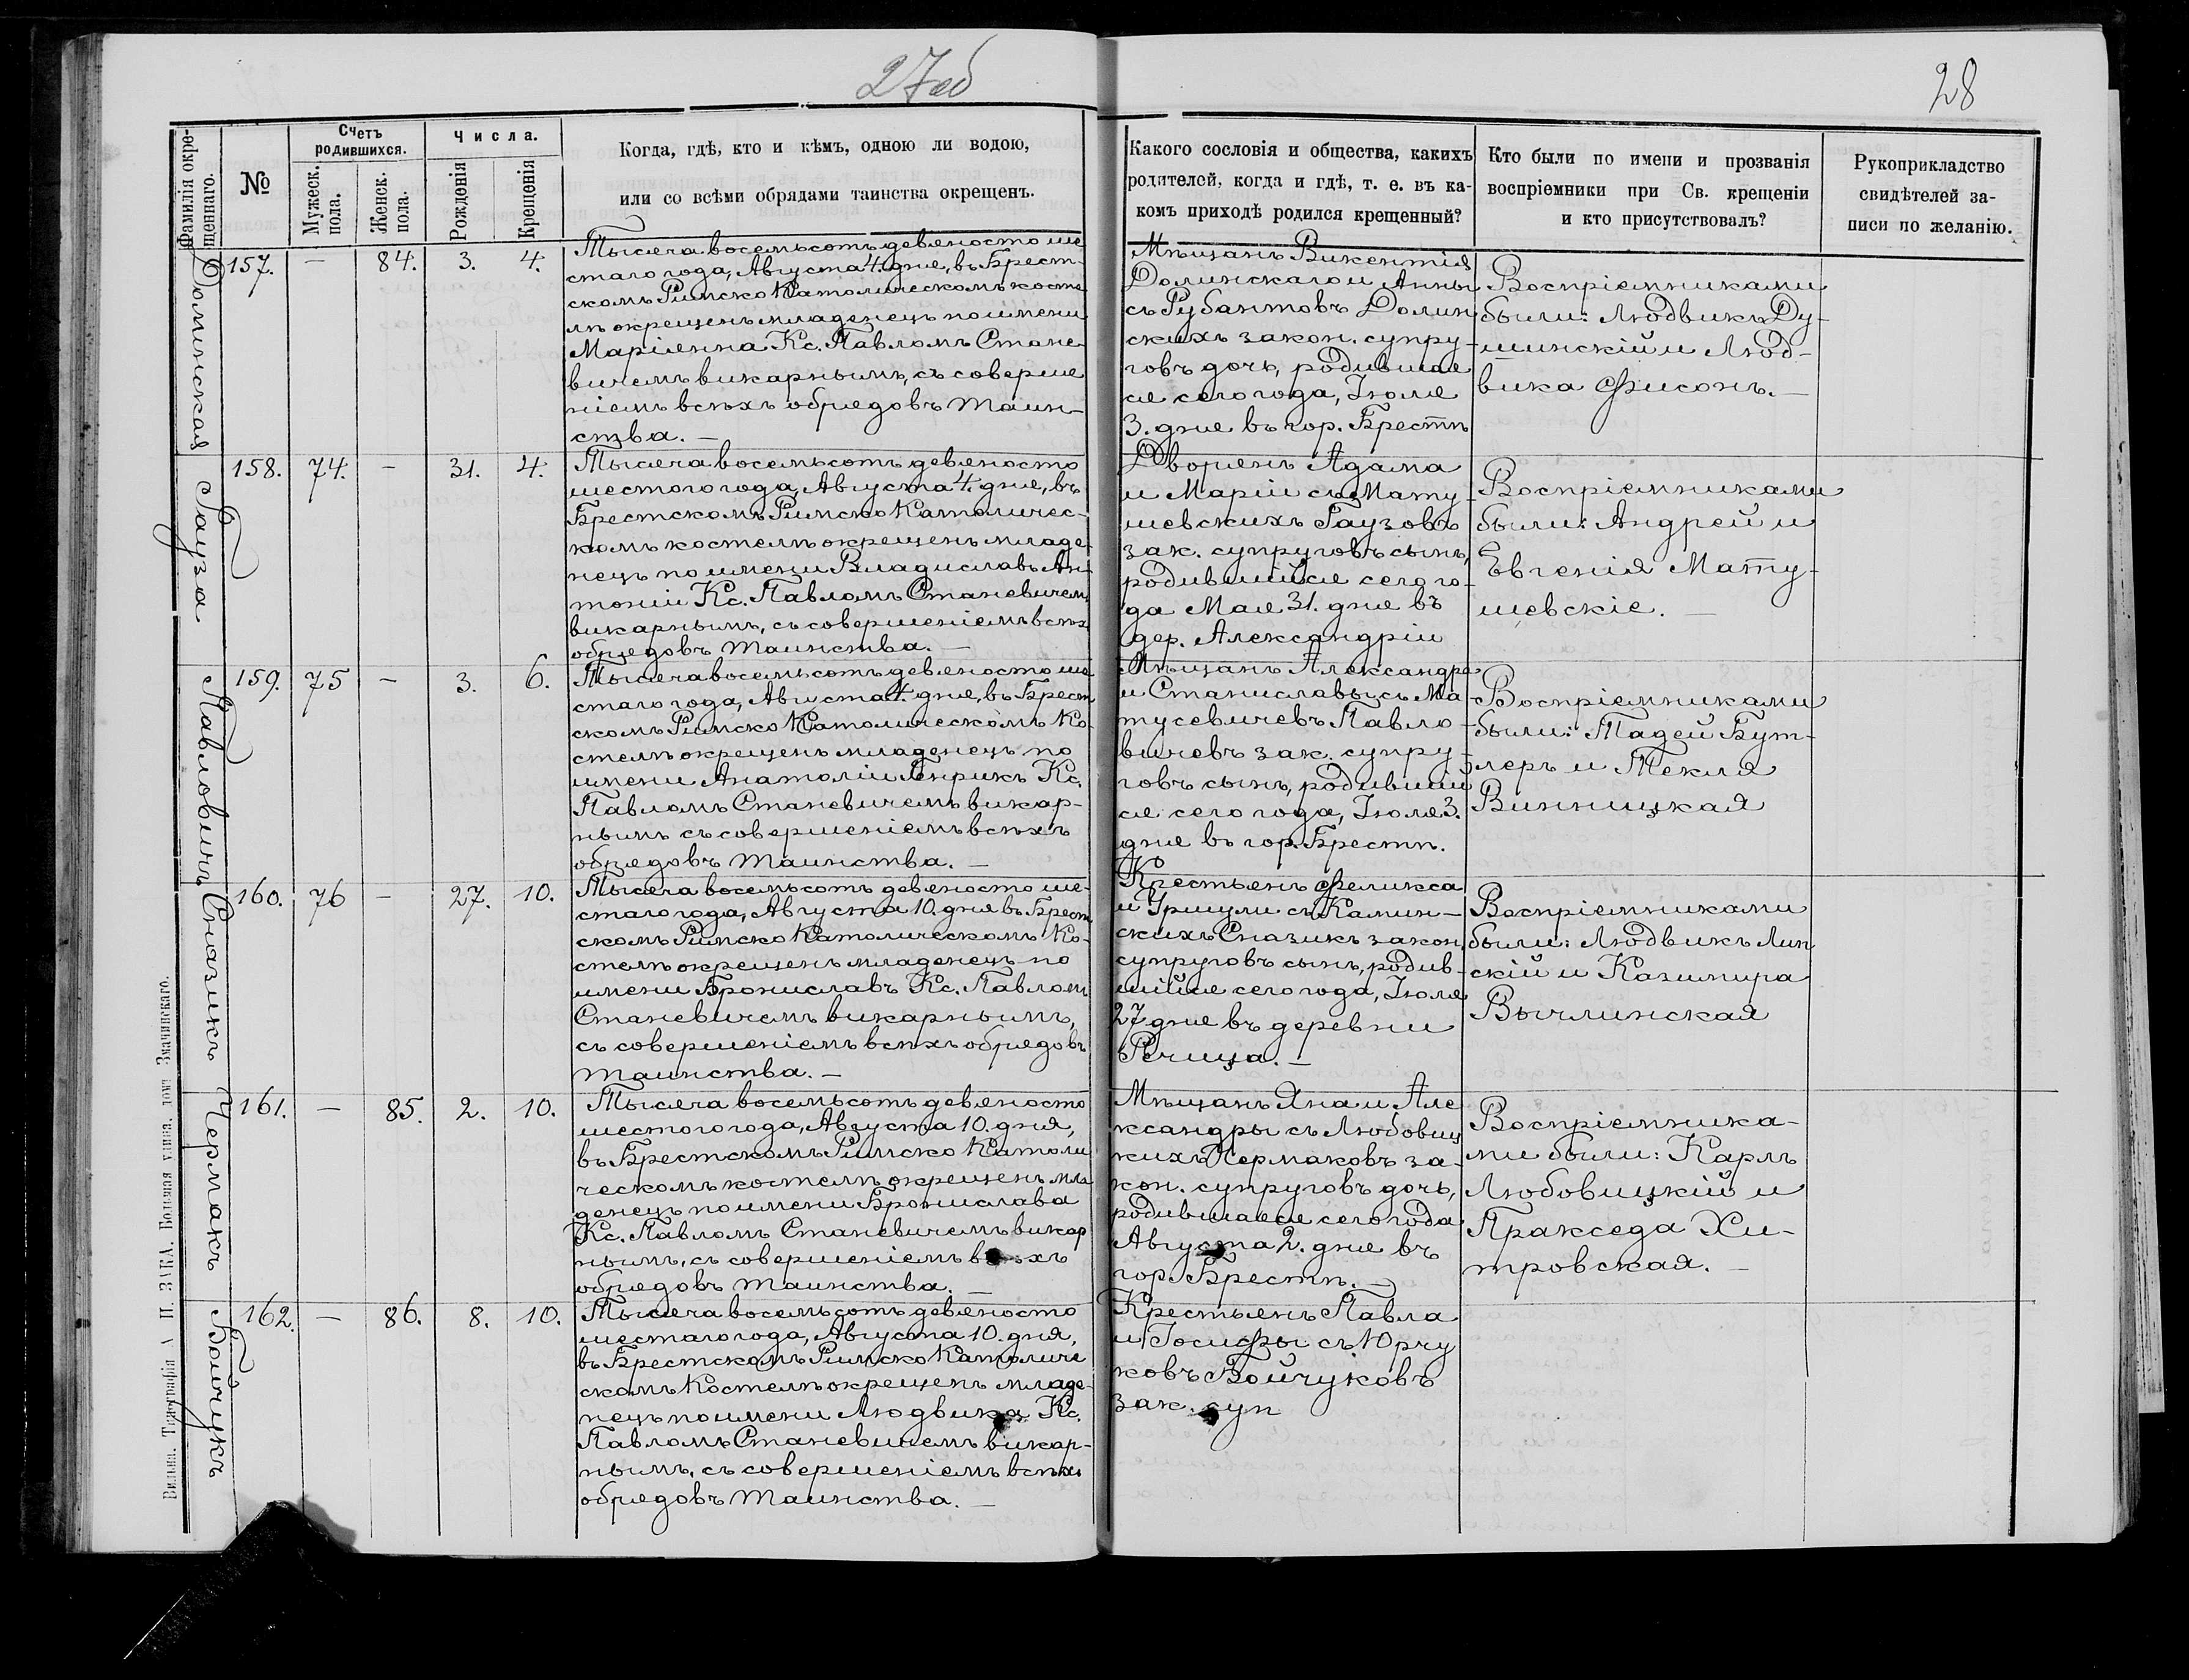 27об
28
Фамилія окре-
щеннаго.
№
Счетъ
родившихся.
Мужеск.
пола.
Женск.
пола.
Числа.
Рожденія
Крещенія
Когда, гдѣ, кто и кѣмъ, одною ли водою,
или со всѣми обрядами таинства окрещенъ.
Какого сословія и общества, какихъ
родителей, когда и гдѣ, т. е. въ ка-
комъ приходѣ родился крещенный?
Кто были по имени и прозванія
воспріемники при Св. крещеніи
и кто присутствовалъ?
Рукоприкладство
свидѣтелей за-
писи по желанію.
Долинская
157.
—
84.
3.
4.
Тысяча восемьсотъ девяносто ше
стаго года, Августа 4. дня, въ Брест-
скомъ Римско Католическомъ косте
лѣ окрещенъ младенецъ по имени
Маріянна Кс. Павломъ Стане-
вичемъ викарнымъ, съ соверше
ніемъ всѣхъ обрядовъ таин-
ства. —
Мѣщанъ Викентія
Долинскаго и Анны
съ Рубантовъ Долин
скихъ закон. супру-
говъ дочь, родившая
ся сего года, Іюля
3. дня въ гор. Брестѣ
Воспріемниками
были: Людвикъ Ду-
шинскій и Люд-
вика Фисонъ. —
Гауза
158.
74.
—
31.
4.
Тысяча восемьсотъ девяносто
шестого года, Августа 4. дня, въ
Брестскомъ Римско Католичес-
комъ костелѣ окрещенъ младе-
нецъ по имени Владиславъ Ан-
тоній Кс. Павломъ Станевичемъ
викарнымъ, съ совершеніемъ всѣхъ
обрядовъ таинства. —
Дворянъ Адама
и Маріи съ Мату-
шевскихъ Гаузовъ
зак. супруговъ сынъ,
родившійся сего го-
да Мая 31. дня въ
дер. Александріи
Воспріемниками
были: Андрей и
Евгенія Мату-
шевскіе. —
Павловичъ
159.
75
—
3.
6.
Тысяча восемьсотъ девяносто ше
стаго года, Августа 4. дня, въ Брест
скомъ Римско Католическомъ Ко-
стелѣ окрещенъ младенецъ по
имени Анатолій Генрикъ Кс.
Павломъ Станевичемъ викар-
нымъ съ совершеніемъ всѣхъ
обрядовъ таинства. —
Мѣщанъ Александра
и Станиславы съ Ма
тусевичевъ Павло-
вичевъ зак. супру-
говъ сынъ, родившій
ся сего года, Іюля 3.
дня въ гор. Брестѣ.
Воспріемниками
были: Тадей Бут-
леръ и Текля
Винницкая
Сназикъ
160.
76
—
27.
10.
Тысяча восемьсотъ девяносто ше-
стаго года, Августа 10. дня въ Брест
скомъ Римско Католическомъ Ко-
стелѣ окрещенъ младенецъ по
имени Брониславъ Кс. Павломъ
Станевичемъ викарнымъ,
съ совершеніемъ всѣхъ обрядовъ
таинства. —
Крестьянъ Феликса
и Уршули съ Камин-
скихъ Сназикъ закон.
супруговъ сынъ, родив-
шійся сего года, Іюля
27 дня въ деревни
Речица. —
Воспріемниками
были: Людвикъ Лип
скій и Казимира
Вычлинская
Чермакъ
161.
—
85.
2.
10.
Тысяча восемьсотъ девяносто
шестого года, Августа 10. дня,
въ Брестскомъ Римско Католи
ческомъ костелѣ окрещенъ мла
денецъ по имени Бронислава
Кс. Павломъ Станевичемъ викар
нымъ, съ совершеніемъ всѣхъ
обрядовъ таинства. —
Мѣщанъ Яна и Але
ксандры съ Любовиц
кихъ Чермаковъ за-
кон. супруговъ дочь,
родившаяся сего года
Августа 2. дня въ
гор. Брестѣ. —
Воспріемника-
ми были: Карлъ
Любовицкій и
Пракседа Хи-
тровская. —
Бойчукъ
162.
—
86.
8.
10.
Тысяча восемьсотъ девяносто
шестаго года, Августа 10. дня,
въ Брестскомъ Римско Католиче
скомъ Костелѣ окрещенъ младе-
нецъ по имени Людвика Кс.
Павломъ Станевичемъ викар-
нымъ, съ совершеніемъ всѣхъ
обрядовъ таинства. —
Крестьянъ Павла
и Іосифы съ Юрчу
ковъ Бойчуковъ
зак. суп
Вильна. Типографія А П. ЗАКА. Большая улица, домъ Значинскаго.